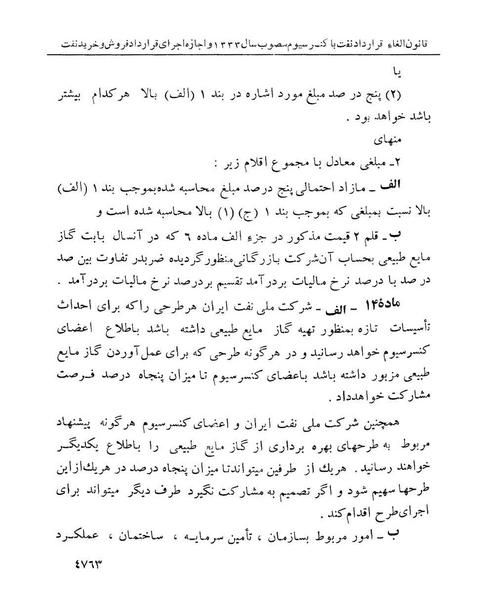 قانون الغاء قرارداد نفت با کنسرسیوم مصوب سال ۱۳۳۳ و اجازه اجرای قرارداد فروش و خرید نفت
یا
(۲) پنج در صد مبلغ مورد اشاره در بند ۱ (الف) بالا هرکدام بیشتر
باشد خواهد بود .
منهای
۲ـ مبلغی معادل با مجموع اقلام زیر :
الف ـ مازاد احتمالی پنج درصد مبلغ محاسبه شده بموجب بند ۱ (الف)
بالا نسبت بمبلغی که بموجب بند ۱ (ج) (۱) بالا محاسبه شده است و
ب ـ قلم ۲ قیمت مذکور در جزء الف ماده ۶ که در آنسال بابت گاز
مایع طبیعی بحساب آن شرکت بازرگانی منظور گردیده ضربدر تفاوت بین صد
در صد با درصد نرخ مالیات بردرآمد تقسیم بردرصد نرخ مالیات بردرآمد .
ماده ۱۴ ـ الف ـ شرکت ملی نفت ایران هرطرحی را که برای احداث
تأسیسات تازه بمنظور تهیه گاز مایع طبیعی داشته باشد باطلاع اعضای
کنسرسیوم خواهد رسانید و در هرگونه طرحی که برای عمل آوردن گاز مایع
طبیعی مزبور داشته باشد باعضای کنسرسیوم تا میزان پنجاه درصد فرصت
مشارکت خواهد داد .
همچنین شرکت ملی نفت ایران و اعضای کنسرسیوم هرگونه پیشنهاد
مربوط به طرحهای بهره برداری از گاز مایع طبیعی را باطلاع یکدیگر
خواهند رسانید . هریک از طرفین میتواند تا میزان پنجاه درصد در هریک از این
طرحها سهیم شود و اگر تصمیم به مشارکت نگیرد طرف دیگر میتواند برای
اجرای طرح اقدام کند .
ب ـ امور مربوط بسازمان ، تأمین سرمایه ، ساختمان ، عملکرد
۴۷۶۳